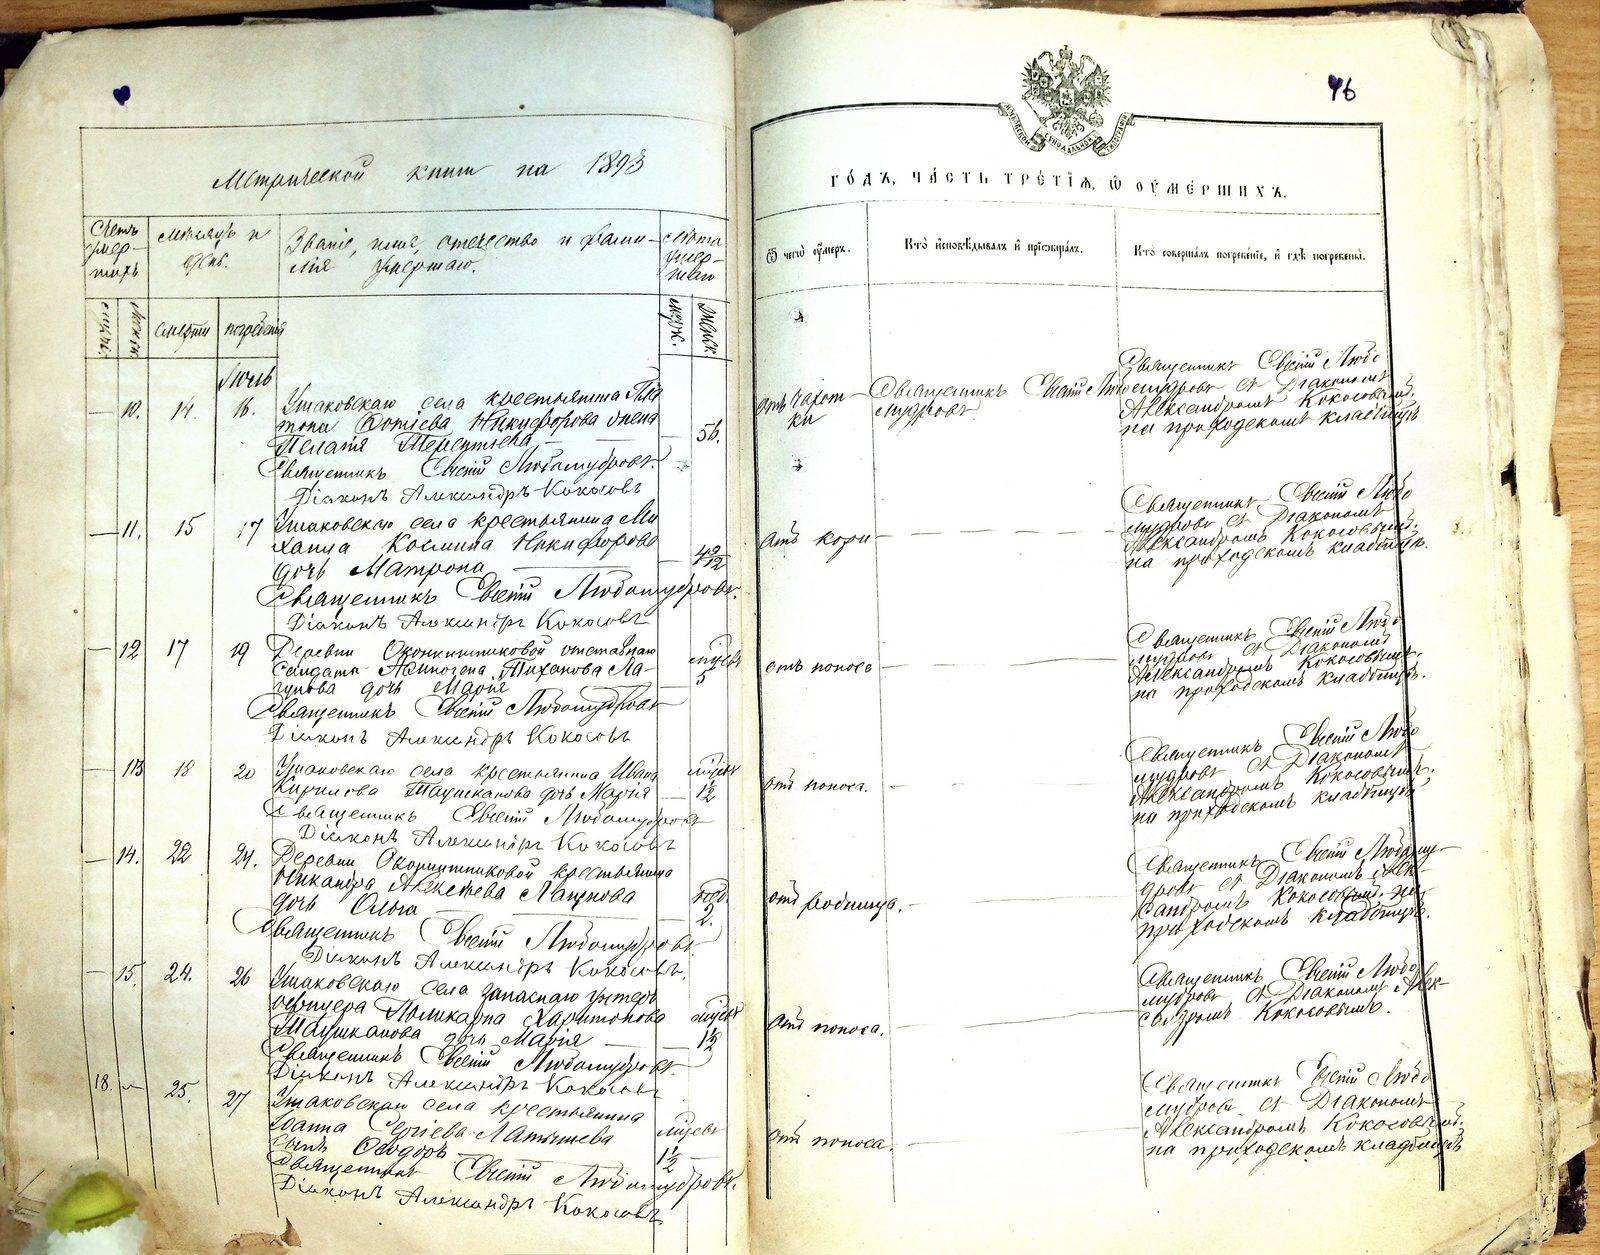 46
Метрической книги на 1893
ГОДЪ, ЧАСТЬ ТРЕТІЯ, Ѿ ОУМЕРШИХЪ.
Счетъ умер-шихъ
Мѣсяцъ и день.
Званіе, имя, отчество и фами-
лія умершаго.
Лѣта умер-шаго
Ѿ чегѡ оумеръ.
Кто исповѣдывалъ и пріобщалъ.
Кто совершалъ погребеніе, и гдѣ погребены.
мужск.
женск.
смерти
погребенія
муж.
женск.
Іюль
— 10. 14. 16.
Ушаковскаго села крестьянина
Никифорова жена
Пелагія Терентьева — — 56.
Священникъ Евсевій Любомудровъ.
Діаконъ Александръ Кокосовъ
Отъ чахот
ки
Священникъ Евсевій Любо
мудровъ
Священникъ Евсевій Любо
мудровъ съ Діакономъ
Александромъ Кокосовымъ.
на приходскомъ кладбищѣ
— 11. 15 17
Ушаковскаго села крестьянина Ми
хаила Космина Никифорова
дочь Матрона — —
Священникъ Евсевій Любомудровъ.
Діаконъ Александръ Кокосовъ
Отъ кори
Священникъ Евсевій Любо
мудровъ съ Діакономъ
Александромъ Кокосовымъ.
на приходскомъ кладбищѣ.
— 12 17 19
Деревни отставнаго
солдата Тихонова Ла-
гунова дочь Марія — 5
Священникъ Евсевій Любомудровъ
Діаконъ Александръ Кокосовъ
отъ поноса
Священникъ Евсевій Любо
мудровъ съ Діакономъ
Александромъ Кокосовымъ.
на приходскомъ кладбищѣ.
— 13 18 20
Ушаковскаго села крестьянина Ивана
Кирилова дочь Марія — 1½
Священникъ Евсевій Любомудровъ
Діаконъ Александръ Кокосовъ
отъ поноса.
Священникъ Евсевій Любо
мудровъ съ Діакономъ
Александромъ Кокосовымъ.
на приходскомъ кладбищѣ
— 14. 22 24.
Деревни крестьянина
Никандра Алексѣева Лагунова
дочь Ольга — — 2.
Священникъ Евсевій Любомудровъ
Діаконъ Александръ Кокосовъ.
отъ
Священникъ Евсевій Любому-
дровъ съ Діакономъ Алек-
сандромъ Кокосовымъ. на
приходскомъ кладбищѣ.
— 15. 24. 26
Ушаковскаго села запаснаго унтеръ
офицера Поликарпа Харитонова
дочь Марія — 1½
Священникъ Евсевій Любомудровъ.
Діаконъ Александръ Кокосовъ
Отъ поноса.
Священникъ Евсевій Любо
мудровъ съ Діакономъ Алек-
сандромъ Кокосовымъ.
18. — 25. 27
Ушаковскаго села крестьянина
Іоанна Сергіева Латышева
сынъ Ѳеодоръ — 1½
Священникъ Евсевій Любомудровъ.
Діаконъ Александръ Кокосовъ
Отъ поноса.
Священникъ Евсевій Любо
мудровъ съ Діакономъ
Александромъ Кокосовымъ.
на приходскомъ кладбищѣ